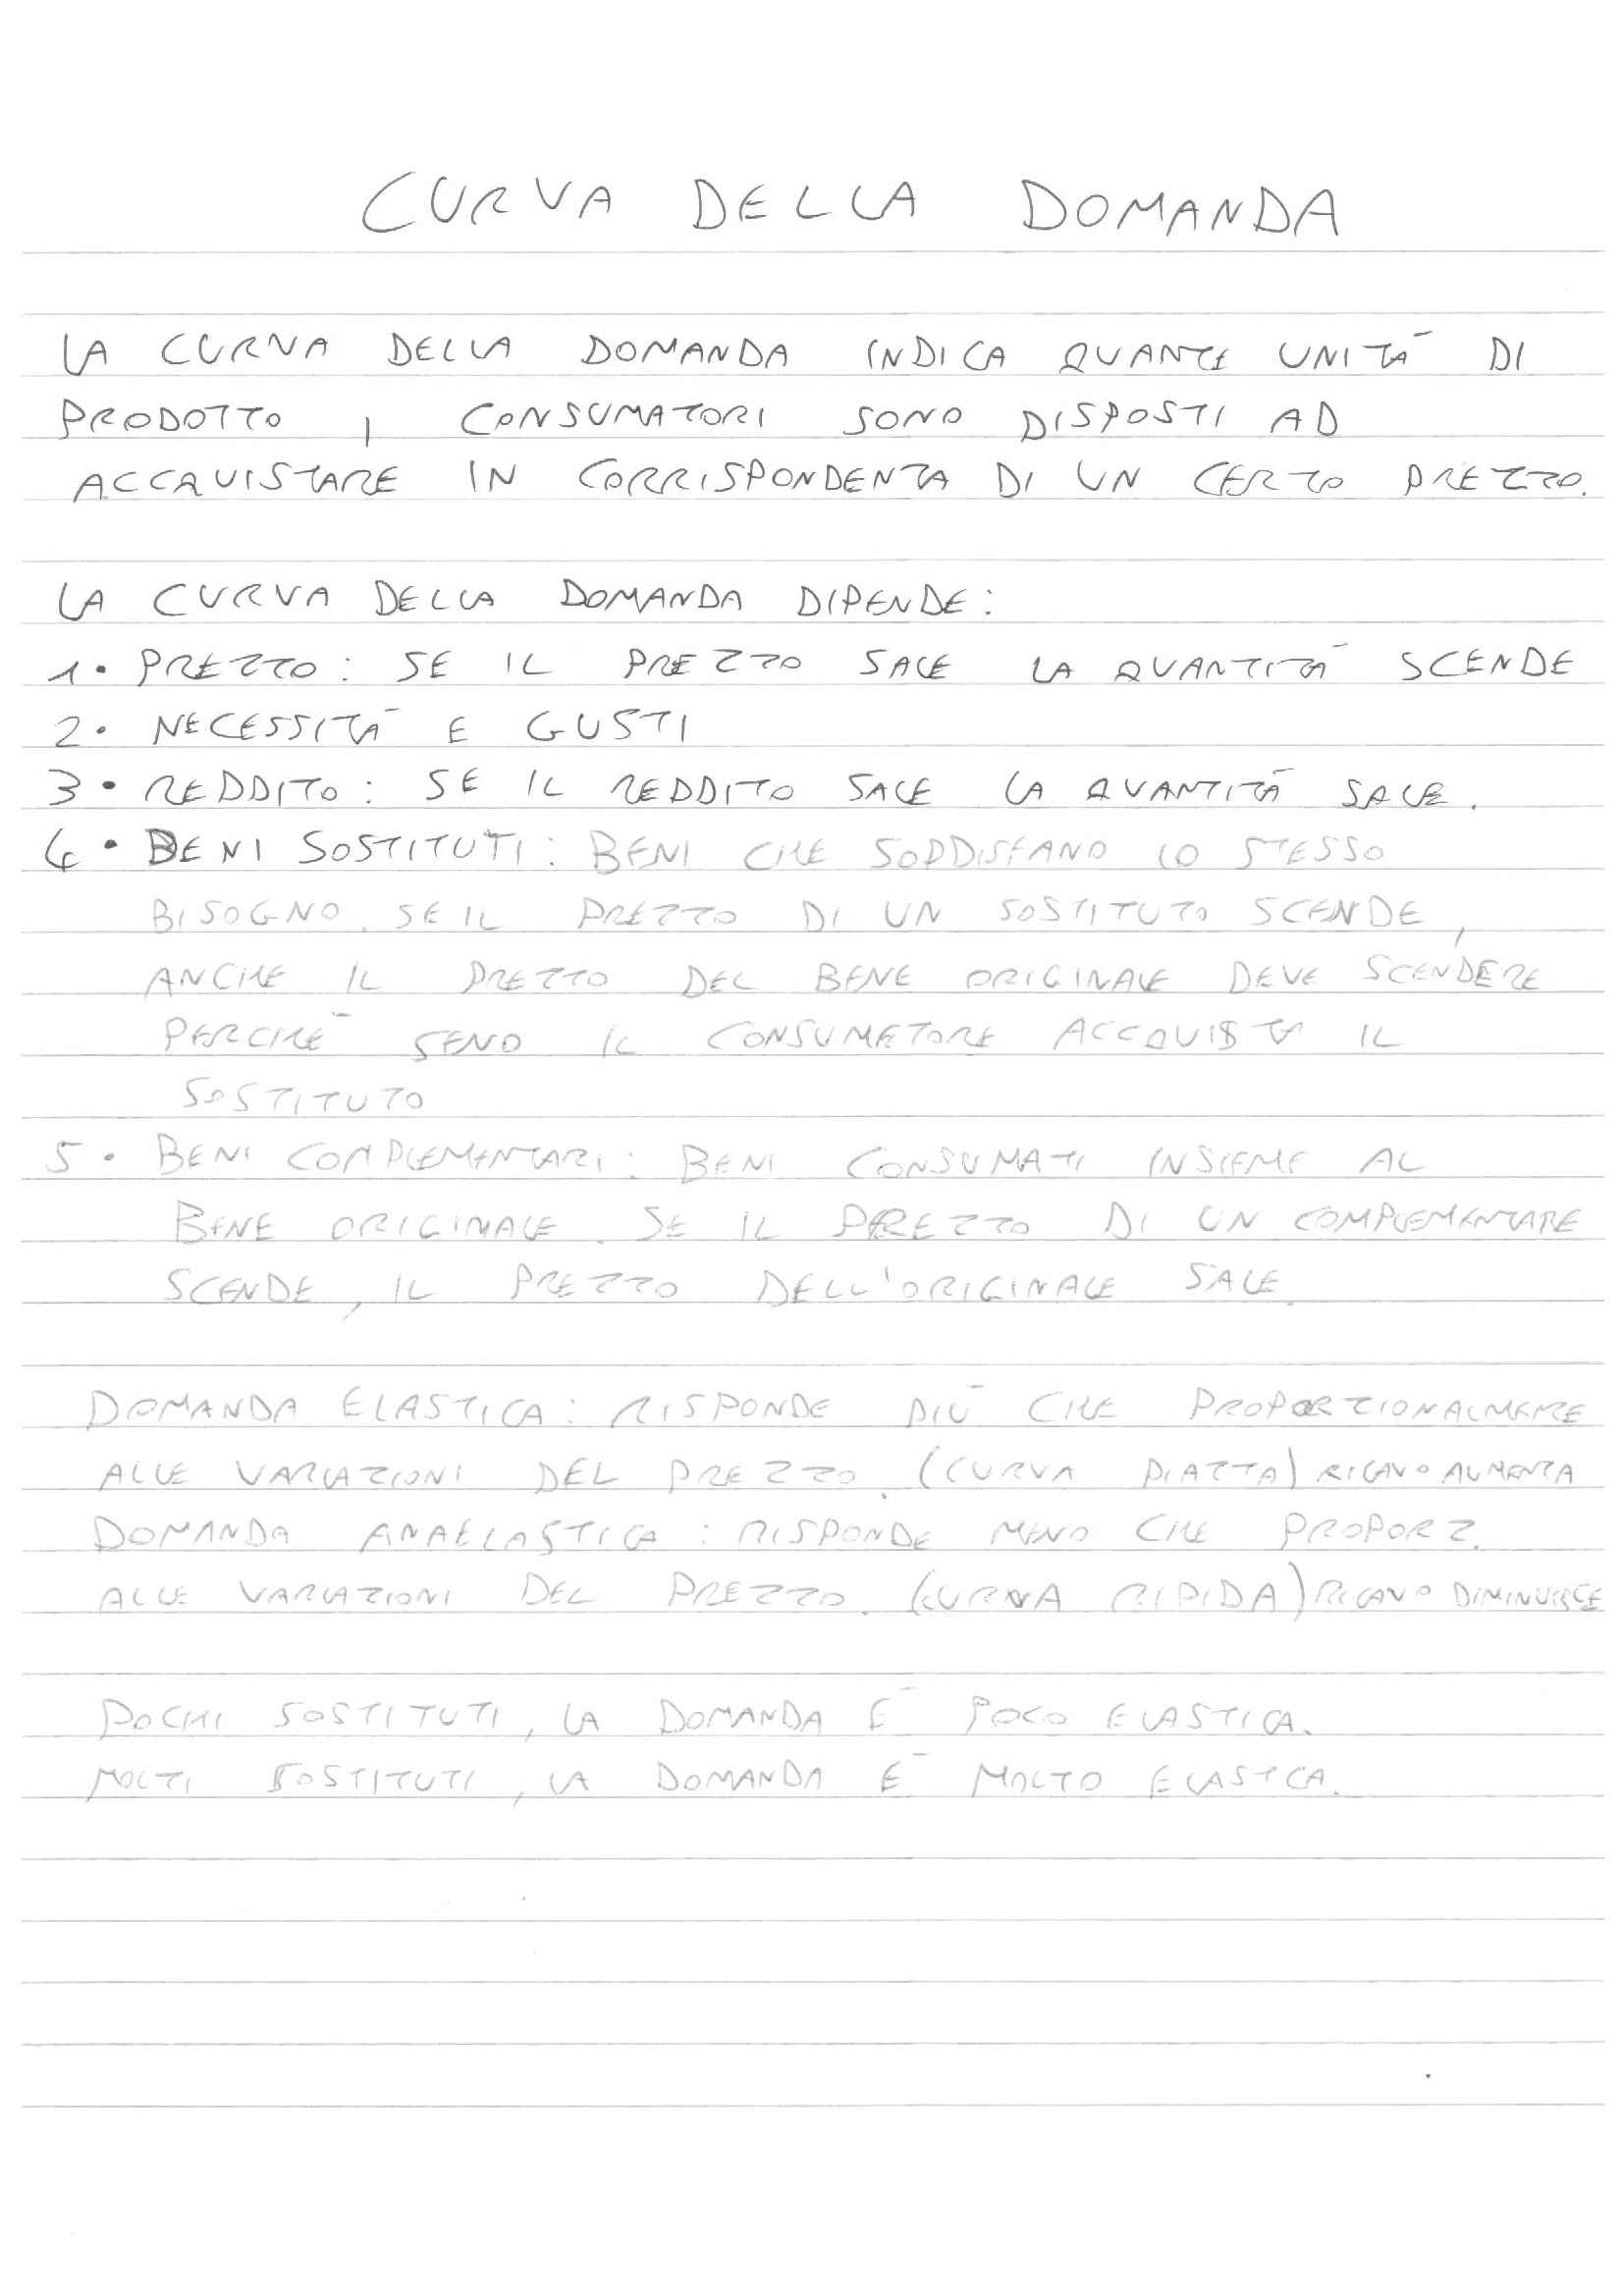 CURVA DELLA DOMANDA
LA CURVA DELLA DOMANDA INDICA QUANTE UNITÀ DI
PRODOTTO I CONSUMATORI SONO DISPOSTI AD
ACCQUISTARE IN CORRISPONDENZA DI UN CERTO PREZZO.
LA CURVA DELLA DOMANDA DIPENDE:
1• PREZZO: SE IL PREZZO SALE LA QUANTITÀ SCENDE
2• NECESSITÀ E GUSTI
3• REDDITO: SE IL REDDITO SALE LA QUANTITÀ SALE.
4• BENI SOSTITUTI: BENI CHE SODDISFANO LO STESSO
BISOGNO. SE IL PREZZO DI UN SOSTITUTO SCENDE,
ANCHE IL PREZZO DEL BENE ORIGINALE DEVE SCENDERE
PERCHÈ SENO IL CONSUMATORE ACCQUISTA IL
SOSTITUTO
5• BENI COMPLEMENTARI: BENI CONSUMATI INSIEME AL
BENE ORIGINALE. SE IL PREZZO DI UN COMPLEMENTARE
SCENDE, IL PREZZO DELL'ORIGINALE SALE.
DOMANDA ELASTICA: RISPONDE PIÙ CHE PROPORZIONALMENTE
ALLE VARIAZIONI DEL PREZZO. (CURVA PIATTA) RICAVO AUMENTA
DOMANDA ANAELASTICA: RISPONDE MENO CHE PROPORZ.
ALLE VARIAZIONI DEL PREZZO. (CURVA RIPIDA) RICAVO DIMINUISCE
POCHI SOSTITUTI, LA DOMANDA È POCO ELASTICA.
MOLTI SOSTITUTI, LA DOMANDA È MOLTO ELASTICA.